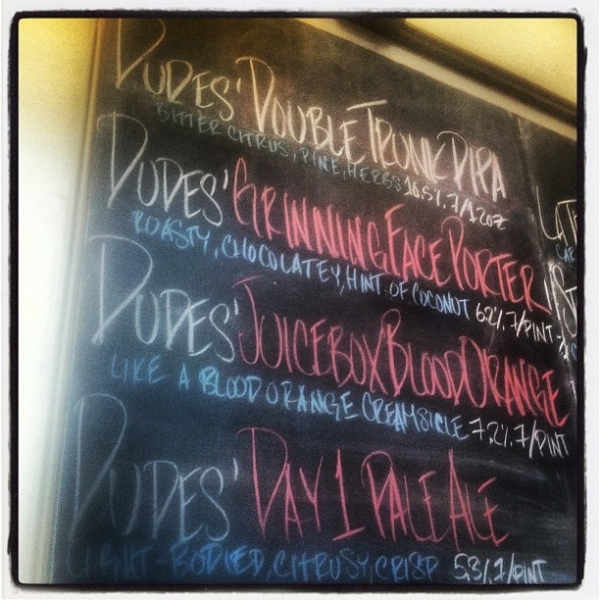 DUDES' DOUBLE TRUNK DIPA
BITTER CITRUS, PINE, HERBS 10.5% 7/12oz
DUDES' GRINNING FACE PORTER
ROASTY, CHOCOLATEY, HINT OF COCONUT 6.2% 7/PINT
DUDES' JUICEBOX BLOOD ORANGE
LIKE A BLOOD ORANGE CREAMSICLE 7.2% 7/PINT
DUDES' DAY 1 PALE ALE
LIGHT-BODIED, CITRUSY, CRISP 5.3% 7/PINT